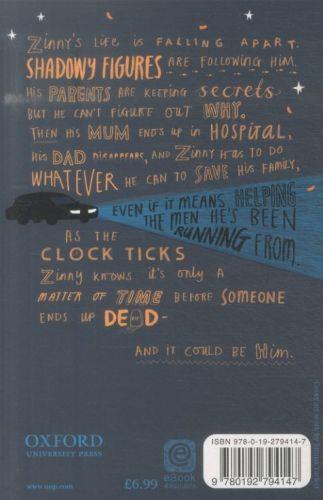 Zinny's LIFE IS FALLING APART.
SHADOWY FIGURES ARE FOLLOWING HIM,
HIS PARENTS ARE KEEPING secrets
BUT HE CAN'T FIGURE OUT WHY.
THEN HIS MUM ENDS UP IN HOSPITAL,
HIS DAD DISAPPEARS, AND Zinny HAS TO DO
WHATEVER HE CAN TO SAVE HIS FAMILY,
EVEN IF IT MEANS HELPING
THE MEN HE'S BEEN
RUNNING FROM.
AS THE
CLOCK TICKS
Zinny KNOWS IT'S ONLY A
MATTER OF TIME BEFORE SOMEONE
ENDS UP DEAD-
AND IT COULD BE Him.
OXFORD
UNIVERSITY PRESS
www.oup.com
£6.99
e
eBook
Available
ISBN 978-0-19-279414-7
9 780192 794147